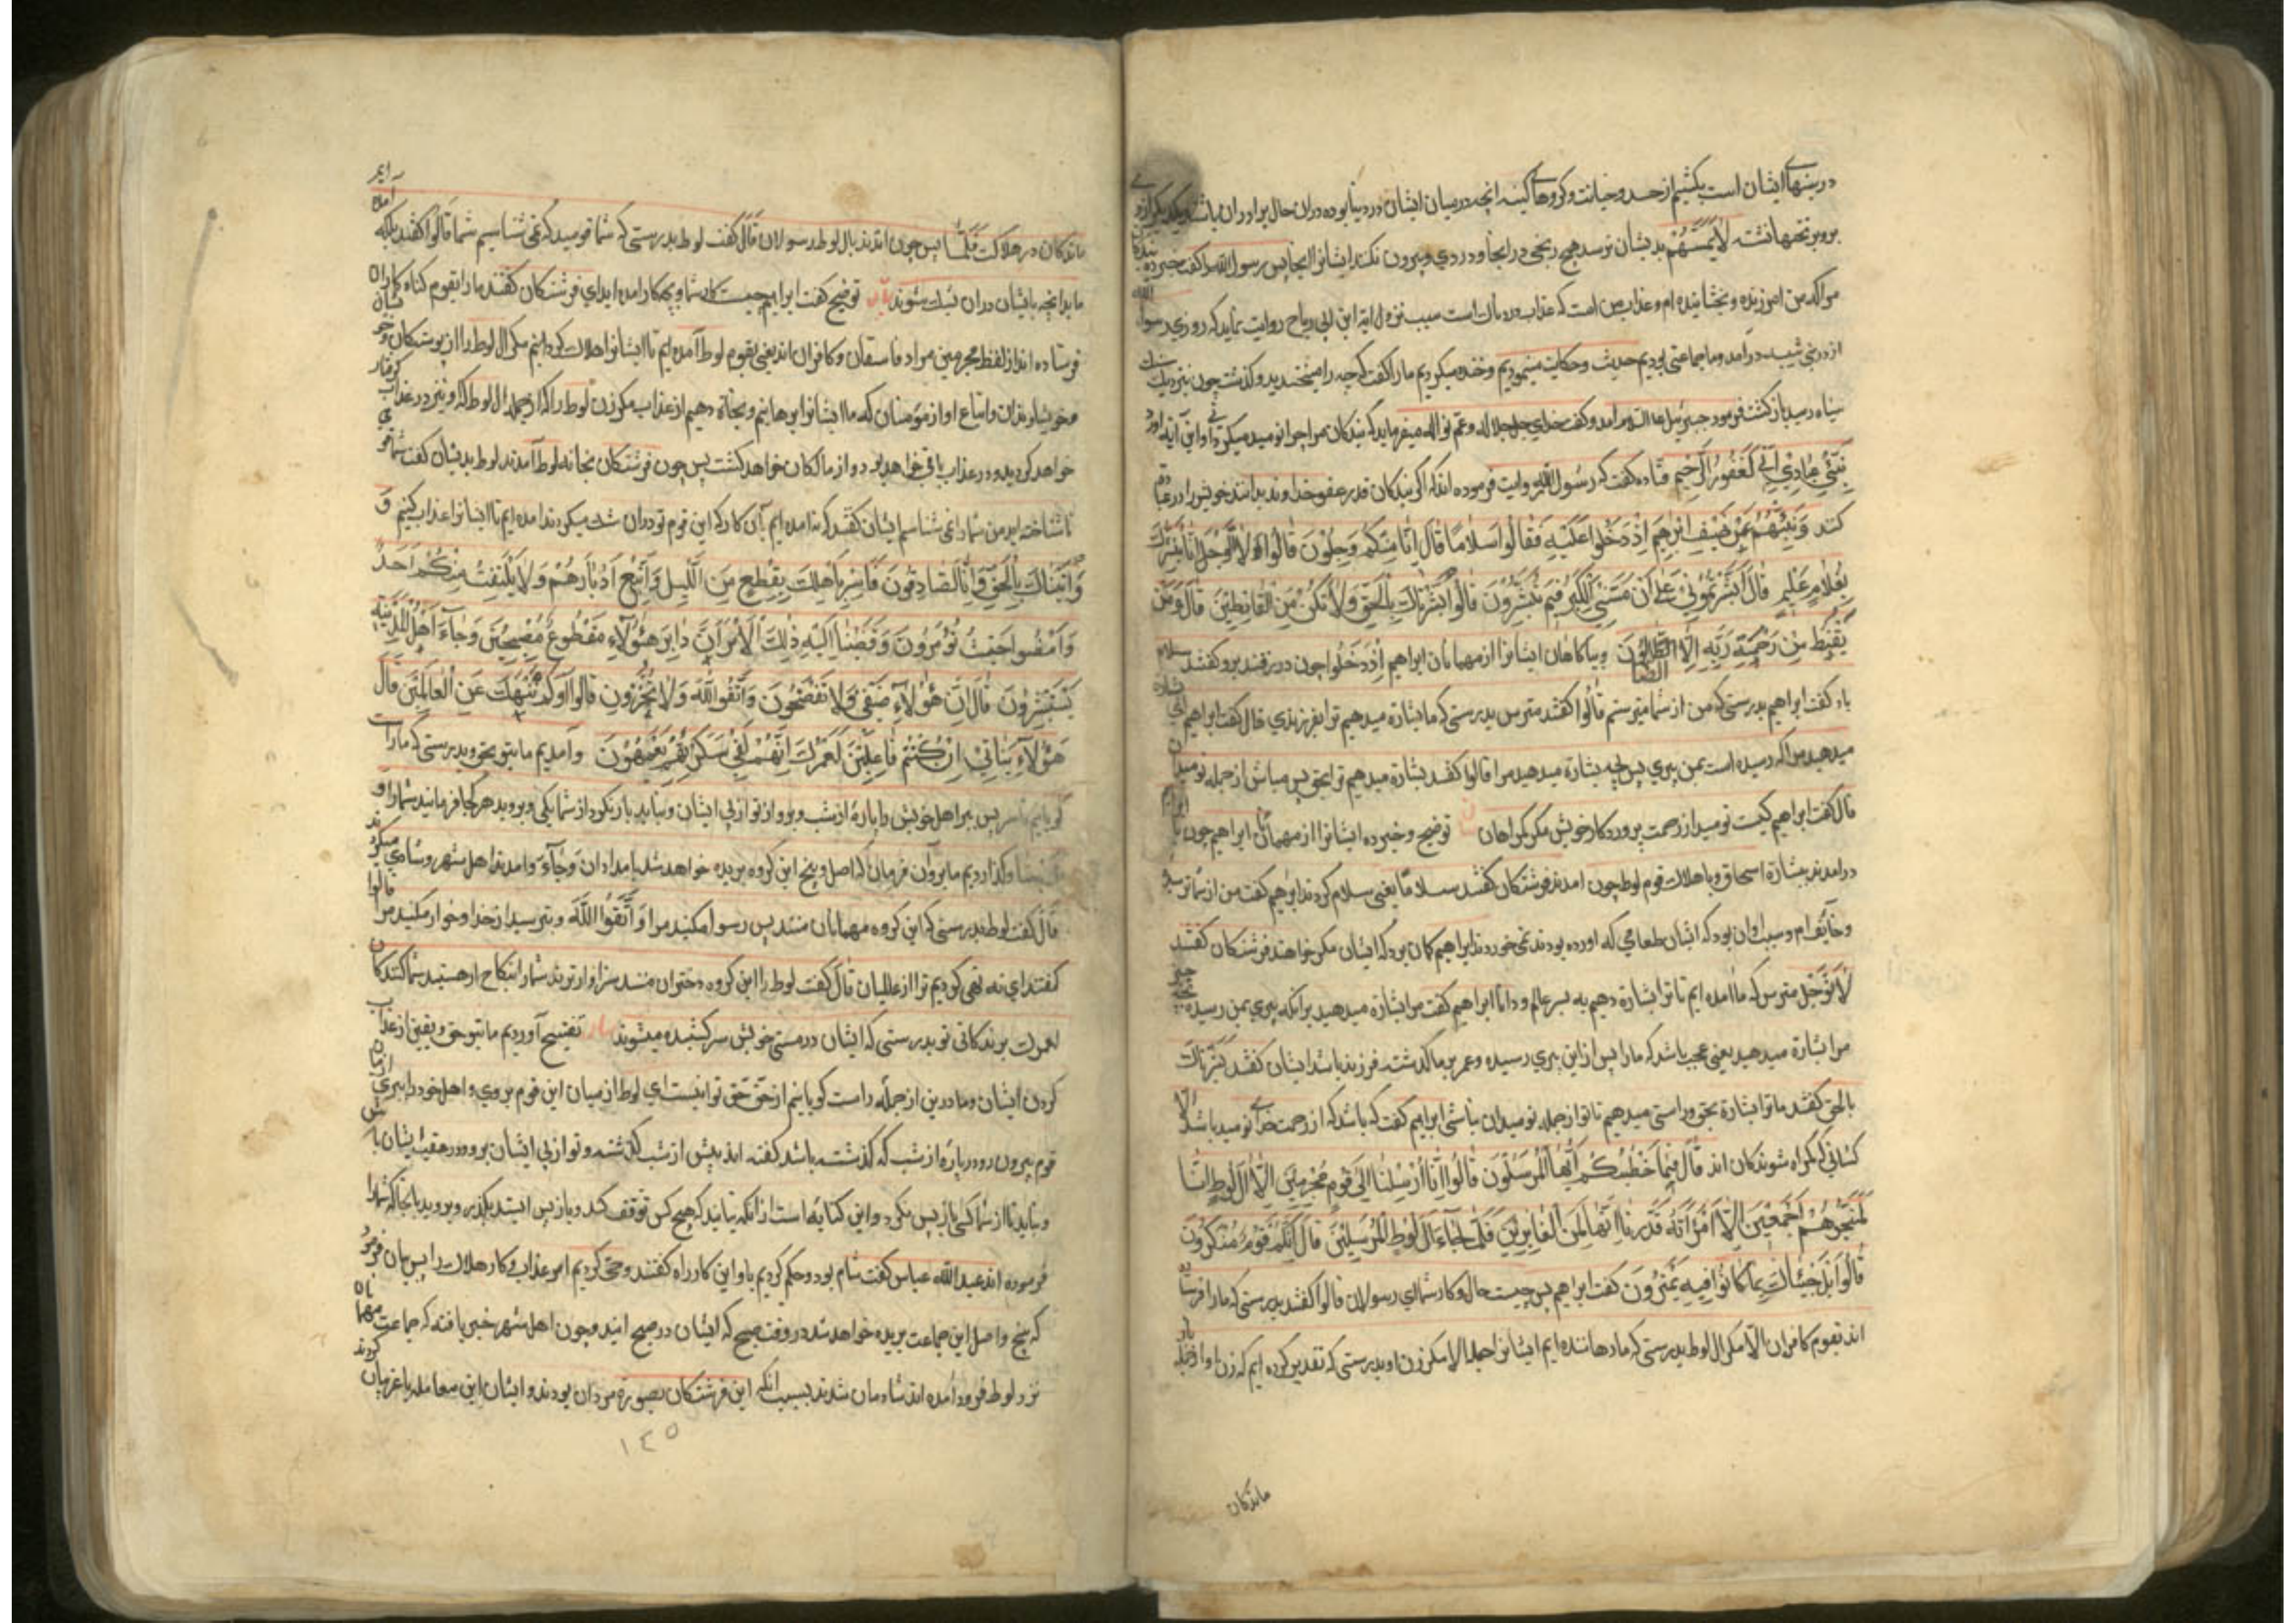 در سینهای ایشان است بکشیم از حسد و خیانت و کروهای کینه انچه در میان ایشان در دنیا بوده در ان حال برادران باشند یکدیکر را
برو بر تختها نشسته لَا یَمَسُّهُمْ بدیشان نرسد هیچ رنجی در انجا و دردی و بیرون نکنند ایشانرا از انجا پس رسول الله را کفت خبر ده بندکان
مرا که من امرزنده و بخشاینده ام و عذاب من است که عذاب دردناك است سبب نزول ایة ابن ابی رباح روایت نماید که روزی رسول الله
از در بنی شیبه درامد و ما جماعتی بودیم حدیث و حکایت مینمودیم و خنده میکردیم مارا کفت که چه را میخندید و کذشت چون بنزدیك سنك
سیاه رسید باز کشت فرمود جبرئیل علیه السلام امد و کفت خدای جل جلاله و عم نواله میفرماید که بندکان مرا چرا نومید میکردانی و این آیة اورد
نَبِّئْ عِبَادِي أَنِّي الْغَفُورُ الرَّحِیم قتاده کفت که رسول الله روایت فرموده اند که اکر بندکان قدر عفو خداوند بدانند خویش را در عبادة
کنند وَنَبِّئْهُمْ عَنْ ضَیْفِ اِبْرٰهِیمَ اِذْ دَخَلُوا عَلَیْهِ فَقَالُوا سَلَامًا قَالَ اِنَّا مِنْکُمْ وَجِلُونَ قَالُوا لَا تَوْجَلْ اِنَّا نُبَشِّرُكَ
بِغُلَامٍ عَلِیمٍ قَالَ اَبَشَّرْتُمُونِی عَلٰی اَنْ مَسَّنِیَ الْکِبَرُ فَبِمَ تُبَشِّرُونَ قَالُوا بَشَّرْنَاكَ بِالْحَقِّ وَلَا تَکُنْ مِنَ الْقَانِطِینَ قَالَ وَمَنْ
یَقْنَطُ مِنْ رَحْمَةِ رَبِّهِ اِلَّا الضَّالُّونَ و بیاکاهان ایشانرا از مهمانان ابراهیم اِذْ دَخَلُوا چون در رفتند برو کفتند سلام
باد کفت ابراهیم بدرستی که من از شما میترسم قَالُوا کفتند مترس بدرستی که ما بشارة میدهیم ترا بفرزندی قال کفت ابراهیم
میدهید مرا که رسیده است بمن پیری پس بچه بشارة میدهید مرا قالوا کفتند بشارة میدهیم ترا بحق پس مباش از جمله نومیدان
قال کفت ابراهیم کیست نومید از رحمت پروردکار خویش مکر کمراهان توضیح و خبر ده ایشانرا از مهمانان ابراهیم چون با ابراهیم
درامدند بشارة اسحاق و با هلاك قوم لوط چون امدند فرشتکان کفتند سلامًا یعنی سلام کردند ابراهیم کفت من از شما ترسیده
و خایف ام و سبب اوان بود که ایشان طعامی که اورده بودند نمی خوردند ابراهیم کمان برد که ایشان مکر خواهند فرشتکان کفتند
لَا تَوْجَل مترس که ما امده ایم تا ترا بشارة دهیم به پسر عالم و دانا ابراهیم کفت مرا بشارة میدهید برانکه پیری بمن رسیده
مرا بشارة میدهید یعنی عجب باشد که مارا پس از این پیری رسیده و عمر بر ما کذشته فرزند باشد ایشان کفتند بَشَّرْنَاكَ
بالحق کفتند ما ترا بشارة بحق و راستی میدهیم تا تو از جمله نومیدان نباشی ابراهیم کفت که باشد که از رحمت خدای نومید باشد الا
کسانی که کمراه شوندکان اند قَالَ فَمَا خَطْبُکُمْ اَیُّهَا الْمُرْسَلُونَ قَالُوا اِنَّا اُرْسِلْنَا اِلٰی قَوْمٍ مُجْرِمِینَ اِلَّا اٰلَ لُوطٍ اِنَّا
لَمُنَجُّوهُمْ اَجْمَعِینَ اِلَّا امْرَاَتَهُ قَدَّرْنَا اِنَّهَا لَمِنَ الْغَابِرِینَ فَلَمَّا جَاءَ اٰلَ لُوطٍ الْمُرْسَلُونَ قَالَ اِنَّکُمْ قَوْمٌ مُنْکَرُونَ
قَالُوا بَلْ جِئْنَاكَ بِمَا کَانُوا فِیهِ یَمْتَرُونَ کفت ابراهیم پس چیست حال و کار شما ای رسولان قالوا کفتند بدرستی که مارا فرستاده
اند بقوم کافران الّا مکر ال لوط بدرستی که ما رهاننده ایم ایشانرا جمله الا مکر زن او بدرستی که تقدیر کرده ایم که زن او از جمله
ماندکان
ماندکان در هلاکت فَلَمَّا پس چون امدند بال لوط رسولان قَالَ کفت لوط بدرستی که شما قومید که نمی شناسیم شما قَالُوا کفتند بلکه امده ایم
ما بدانچه بایشان دران بشك شوند توضیح کفت ابراهیم چیست کار شما و بچه کار امده اید ای فرشتکان کفتند مارا بقوم کناه کاران
فرستاده اند از لفظ مجرمین مراد فاسقان و کافران اند یعنی بقوم لوط آمده ایم تا ایشانرا هلاك کردانیم مکر ال لوط را
و خویشاوندان و اتباع او از مؤمنان که ما ایشانرا برهانیم و نجاة دهیم از عذاب مکر زن لوط را که از جمله ال لوط که او نیز در عذاب کرفتار
خواهد کردید و در عذاب باقی خواهد بود و از ماندکان خواهد کشت پس چون فرشتکان بخانه لوط آمدند لوط بدیشان کفت شما قومی
ناشناخته اید من شمارا نمی شناسم ایشان کفتند که نه امده ایم بآن کار که این قوم تو دران شك میکردند امده ایم تا ایشانرا عذاب کنیم وَ
وَاَتَیْنَاكَ بِالْحَقِّ وَاِنَّا لَصَادِقُونَ فَاَسْرِ بِاَهْلِكَ بِقِطْعٍ مِنَ الَّلیْلِ وَاتَّبِعْ اَدْبَارَهُمْ وَلَا یَلْتَفِتْ مِنْکُمْ اَحَدٌ
وَامْضُوا حَیْثُ تُؤْمَرُونَ وَقَضَیْنَا اِلَیْهِ ذٰلِكَ الْاَمْرَ اَنَّ دَابِرَ هٰؤُلَاءِ مَقْطُوعٌ مُصْبِحِینَ وَجَاءَ اَهْلُ الْمَدِینَةِ
یَسْتَبْشِرُونَ قَالَ اِنَّ هٰؤُلَاءِ ضَیْفِی فَلَا تَفْضَحُونَ وَاتَّقُوا اللّٰهَ وَلَا تُخْزُونِ قَالُوا اَوَلَمْ نَنْهَكَ عَنِ الْعَالَمِینَ قَالَ
هٰؤُلَاءِ بَنَاتِی اِنْ کُنْتُمْ فَاعِلِینَ لَعَمْرُكَ اِنَّهُمْ لَفِی سَکْرَتِهِمْ یَعْمَهُونَ و آمدیم ما بتو بحق و بدرستی که ما راست
کویانیم پس ببر اهل خویش را بپارهٔ از شب و برو از تو از پی ایشان و نباید باز نکرد از شما یکی و بروید هر کجا فرمانید شما را و
کذاردیم ما برو آن فرمان که اصل و بیخ این کروه بریده خواهد شد بامدادان وَجَاءَ و امدند اهل شهر و شادی میکردند
قَالَ کفت لوط بدرستی که این کروه مهمانان منند پس رسوا مکنید مرا وَاتَّقُوا اللَّهَ و بترسید از خدا و خوار مکنید مرا قالوا
کفتند ای نه نهی کردیم ترا از عالمیان قَالَ کفت لوط را این کروه دختران منند سزاوارترند شما را بنکاح ار هستید شما کنندکان
لعمرك بزندکانی تو بدرستی که ایشان در مستی خویش سرکشیده میشوند تفسیح آوردیم ما بتو حق و یقین از عذاب
کردن ایشان و ما درین از جملهٔ راست کویانیم از حق حق توانیست ای لوط از میان این قوم بروی و اهل خود را ببری
قوم بیرون رو در پارهٔ از شب که کذشته باشد کفته اند پیش از شب کذشته و تو از پی ایشان برو و در عقب ایشان باش
و نباید تا از شما کسی باز پس نکرد و این کنایه است از انکه نباید که هیچ کس توقف کند و باز پس ایستد بکذرید و بروید بانجا که شما را
فرموده اند عبد الله عباس کفت شام بود و حکم کردیم باو این کار راه کفتند وحی کردیم امر عذاب و کار هلاك را پس بیان فرمود
که بیخ و اصل این جماعت بریده خواهد شد در وقت صبح که ایشان در صبح ایند و چون اهل شهر خبر یافتند که جماعت مهمانان
نزد لوط فرود امده اند شادمان شدند بسبب انکه این فرشتکان بصورة مردان بودند و ایشان این معامله با غریبان کردند
۱٤٥